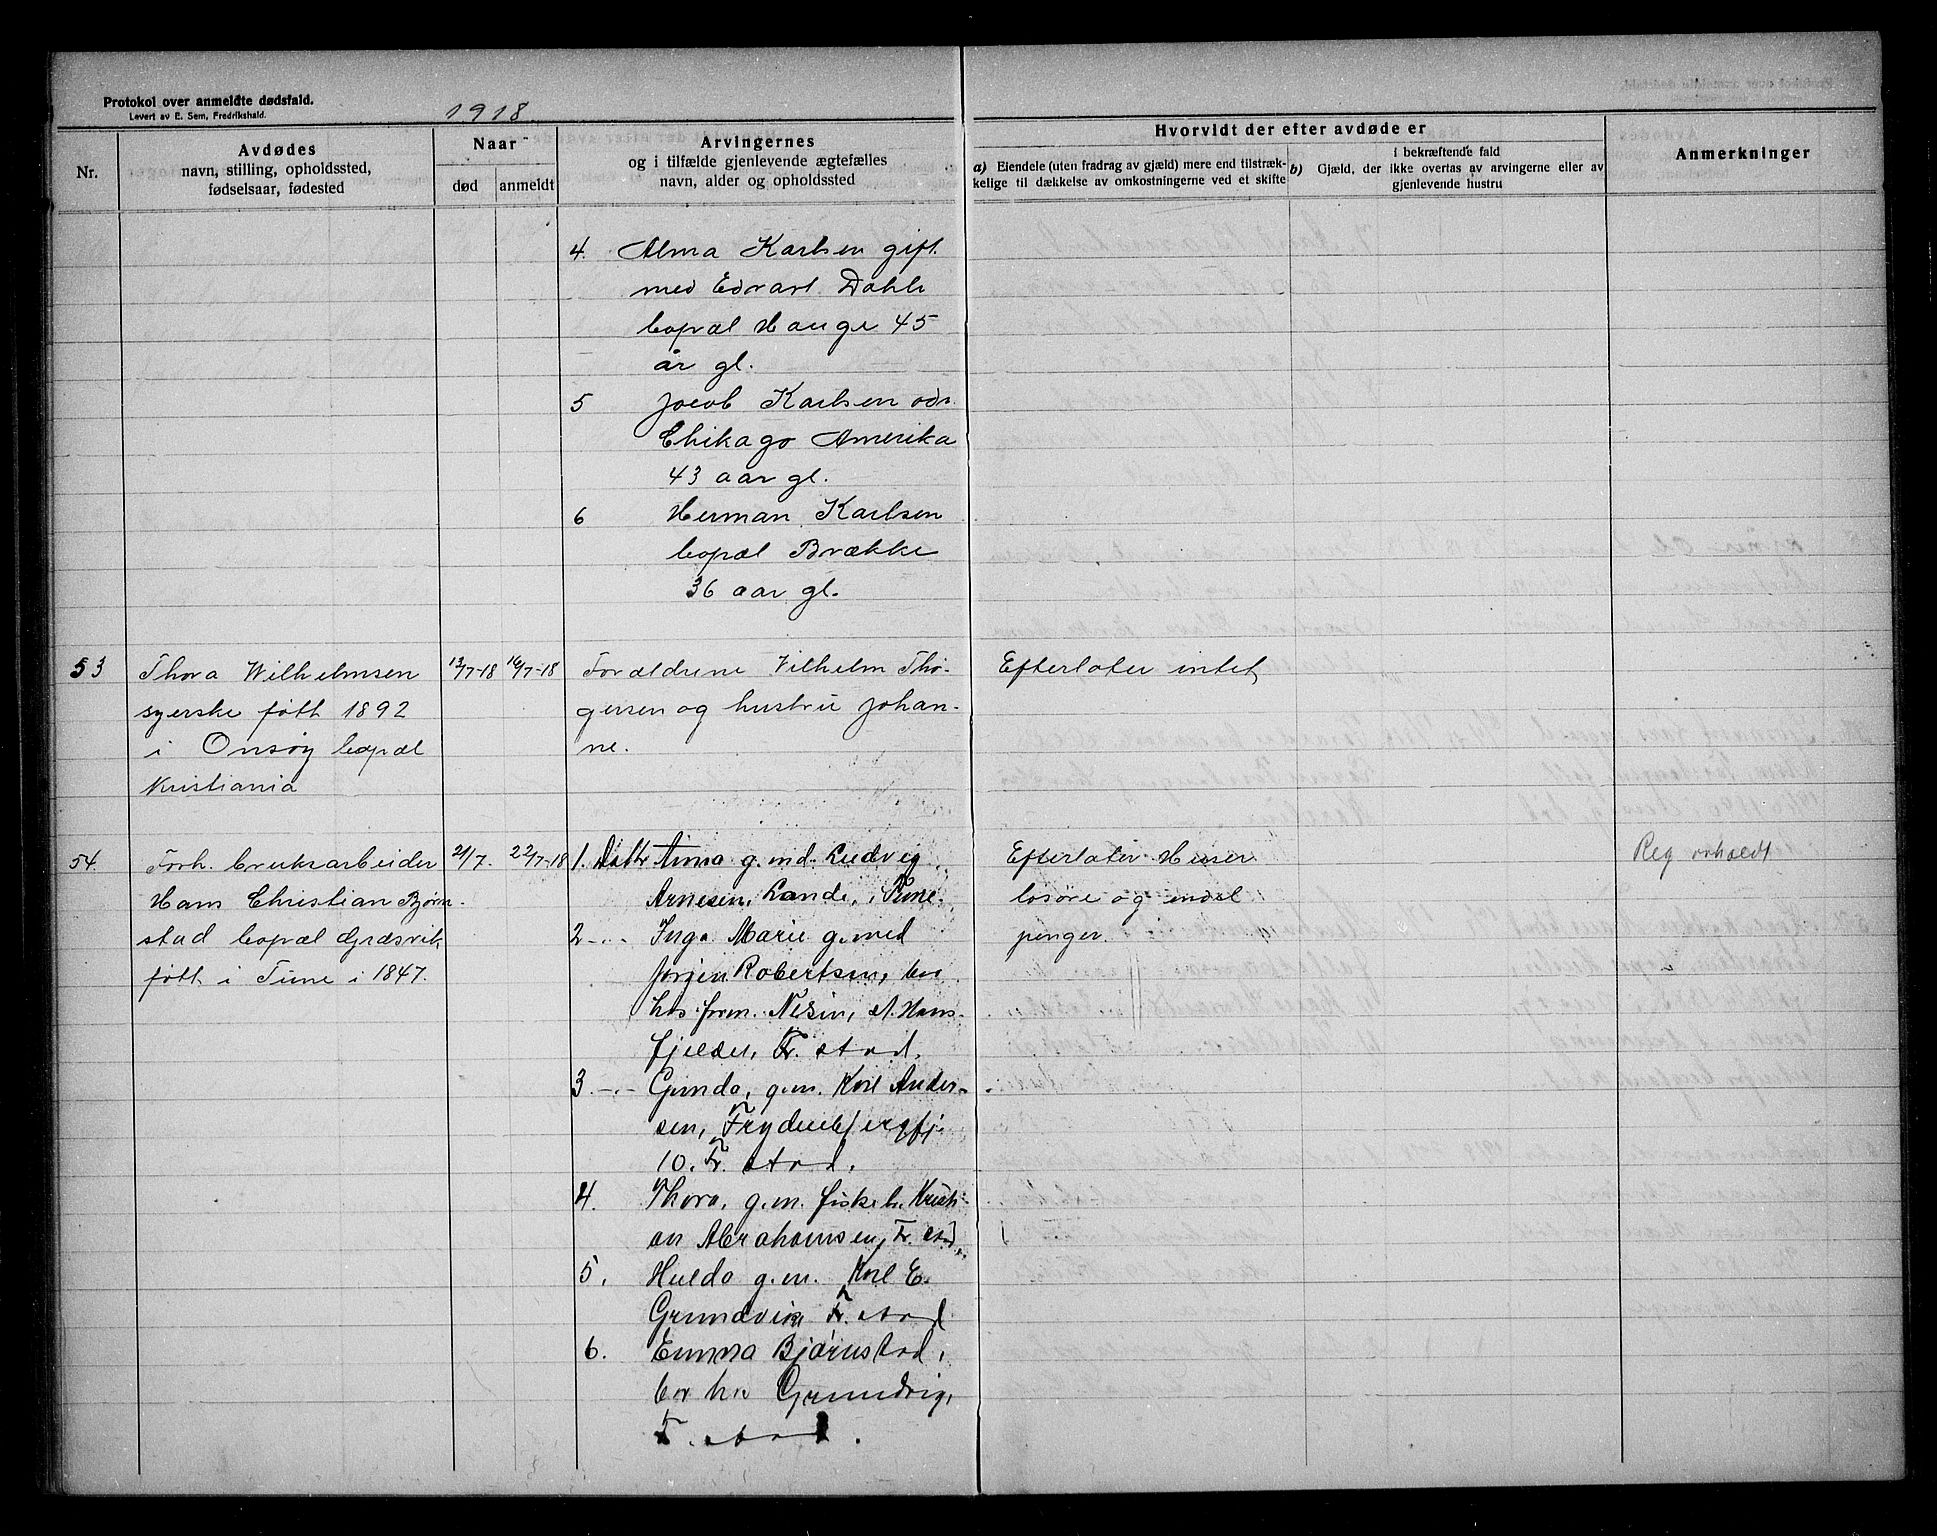 Protokol over anmeldte dødsfald.
Levert av E. Sem, Fredrikshald.
1918.
Nr.
Avdødes
navn, stilling, opholdssted,
fødselsaar, fødested
Naar
død
anmeldt
Arvingernes
og i tilfælde gjenlevende ægtefælles
navn, alder og opholdssted
Hvorvidt der efter avdøde er
a) Eiendele (uten fradrag av gjæld) mere end tilstræk-
kelige til dækkelse av omkostningerne ved et skifte
b) Gjæld, der ikke overtas av arvingerne eller av
i bekræftende fald
gjenlevende hustru
Anmerkninger
4. Alma Karlsen gift.
med Edvart Dahl
bopæl Hauge 45
år gl.
5 Jacob Karlsen adr.
Chikago Amerika
43 aar gl.
6 Herman Karlsen
bopæl Brække
36 aar gl.
53
Thora Wilhelmsen
syerske født 1892
i Onsøy bopæl
Kristiania
13/7-18
16/7-18
Forældrene Vilhelm Thø-
gersen og hustru Johan-
ne.
Efterlater intet
54.
Forh. bruksarbeider
Hans Christian Bjørn-
stad bopæl Græsvik
født i Tune i 1847.
21/7.
22/7-18
1. Datter Anna g. md. Ludvig
Arnesen, Lande, i Tune.
2 -.- Inga Marie g. med
Jørgen Robertsen, bor
hos form. Nilsen, St. Hans-
fjeldet, Fr. stad.
3 -.- Gunda, g.m. Karl Ander-
sen, Frydenbergfj.
10. Fr. stad.
4. Thora, g.m. fiskeh. Kristi-
an Abrahamsen, Fr. stad,
5. Hulda g.m. Karl E.
Grundvig Fr. stad
6. Emma Bjørnstad,
bor hos Grundvig,
F. stad.
Efterlater Huser
løsøre og endel
penger.
Reg. avholdt